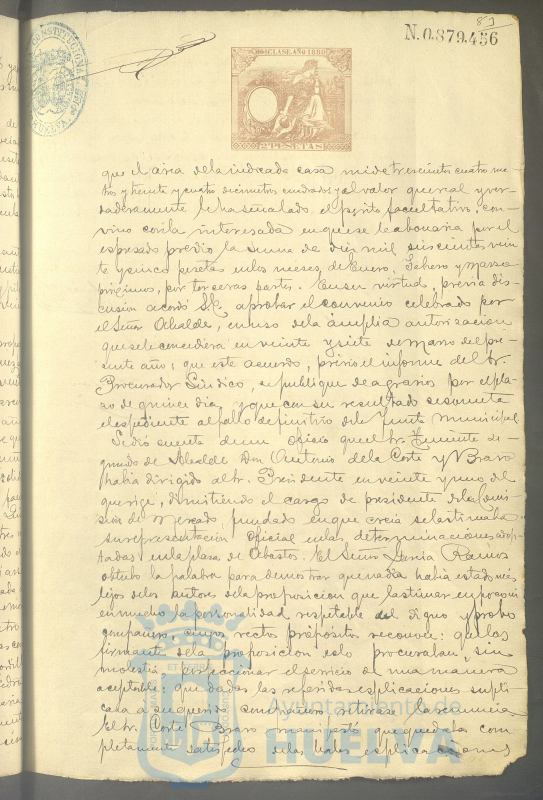 83
N.0.879.456
CONSTITUCIONAL
HUELVA
CLASE AÑO 1880
2 PESETAS
que el área de la indicada casa mide trescientos cuatro me-
tros y treinta y cuatro decímetros cuadrados y al valor que real y ver-
daderamente le ha señalado el perito facultativo, con-
vino con la interesada en que se le abonaria por el
espresado predio la suma de diez mil seiscientas vein
te y cinco pesetas en los meses, de Enero, Febrero y Marzo
próximos, por terceras partes. En su virtud, previa dis-
cusion acordó S.E. aprobar el convenio celebrado por
el Señor Alcalde, en uso de la ámplia autorizacion
que se le concediera en veinte y siete de Marzo del pre-
sente año; que este acuerdo, prévio el informe del Sr.
Procurador Síndico, se publique de agravios por el pla
zo de quince dias y que con su resultado se someta
el espediente al fallo definitivo de la Junta municipal
Se dió cuenta de un oficio que el Sr. Teniente se-
gundo de Alcalde Don Antonio de la Corte y Bravo
había dirigido al Sr. Presidente en veinte y uno del
que rige, dimitiendo el cargo de presidente de la Comi
sion de Mercado, fundado en que creia se lastimaba
su representacion oficial en las determinaciones adop
tadas en la plaza de Abastos. El Señor García Ramos
obtubo la palabra para demostrar que nadia había estado mas
lejos de los autores de la proposicion que lastimar en poco ni
en mucho la personalidad respetable del digno y probo
compañero cuyos rectos propósitos reconoce: que los
firmantes de la proposicion solo procuraban, sin
molestia, perfeccionar el servicio de una manera
aceptable: que dadas las referidas esplicaciones supli
caba a su querido compañero retirase la renuncia
El Sr. Corte y Bravo manifestó que quedaba com
pletamente satisfecho de las leales esplicaciones
Ayuntamiento de
HUELVA